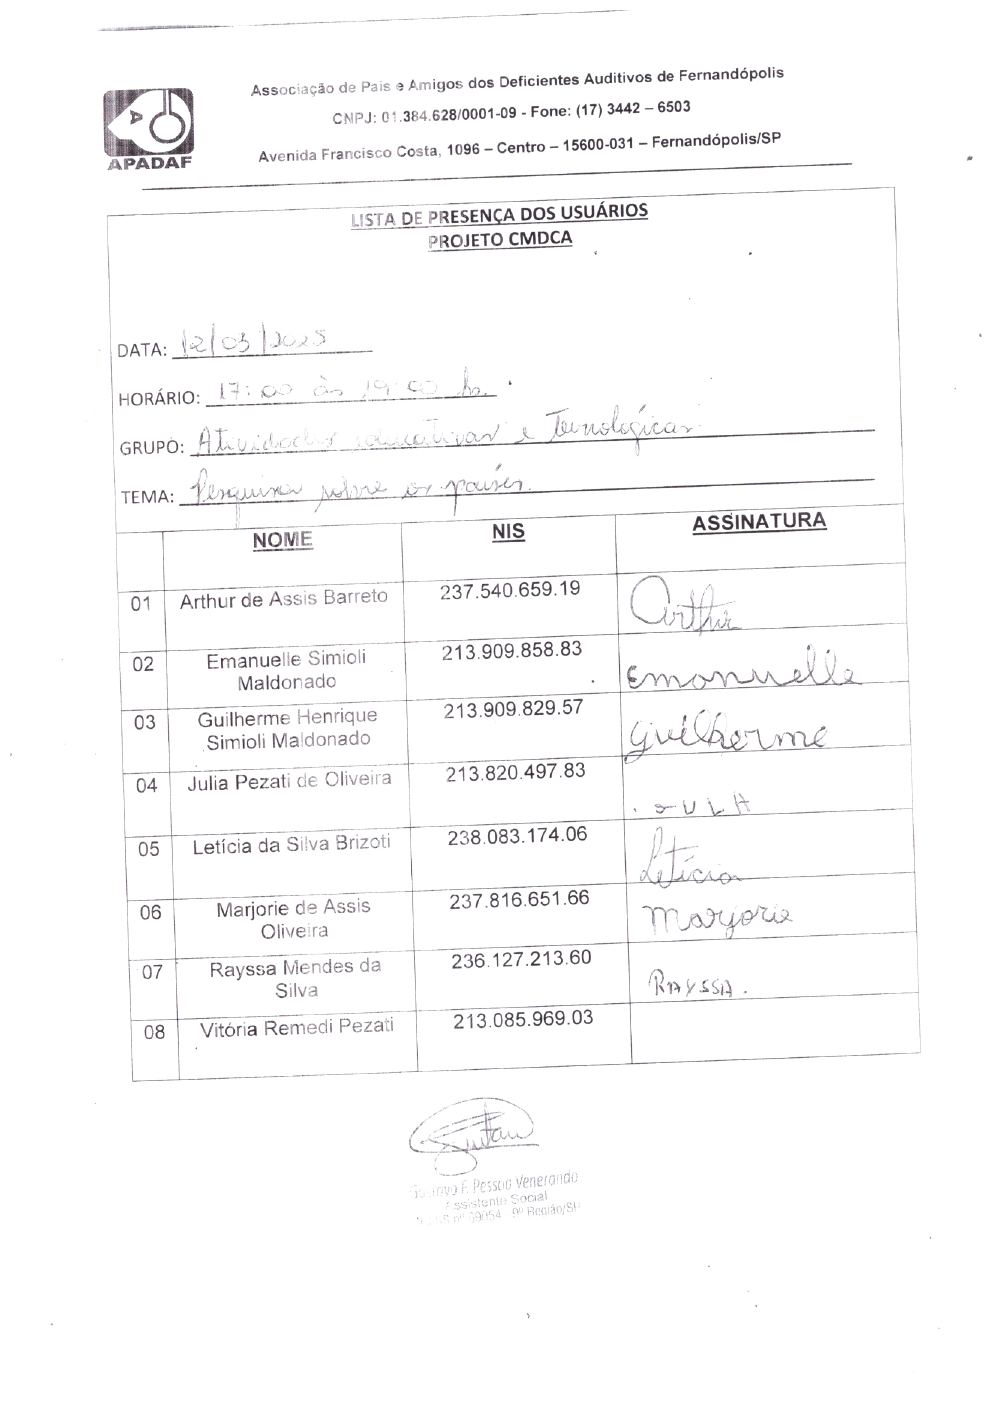 Associação de Pais e Amigos dos Deficientes Auditivos de Fernandópolis
CNPJ: 01.384.628/0001-09 - Fone: (17) 3442 – 6503
Avenida Francisco Costa, 1096 – Centro – 15600-031 – Fernandópolis/SP
APADAF
LISTA DE PRESENÇA DOS USUÁRIOS
PROJETO CMDCA
DATA: 12/03/2025
HORÁRIO: 17:00 às 19:00 hs.
GRUPO: Atividades educativas e Tecnológicas
TEMA: Pesquisa sobre os países.
NOME NIS ASSINATURA
01 Arthur de Assis Barreto 237.540.659.19 Arthur
02 Emanuelle Simioli Maldonado 213.909.858.83 Emanuelle
03 Guilherme Henrique Simioli Maldonado 213.909.829.57 Guilherme
04 Julia Pezati de Oliveira 213.820.497.83
05 Letícia da Silva Brizoti 238.083.174.06 Letícia
06 Marjorie de Assis Oliveira 237.816.651.66 Marjorie
07 Rayssa Mendes da Silva 236.127.213.60 RAYSSA.
08 Vitória Remedi Pezati 213.085.969.03
F. Pessoa Venerando
Assistente Social
9ª Região/SP